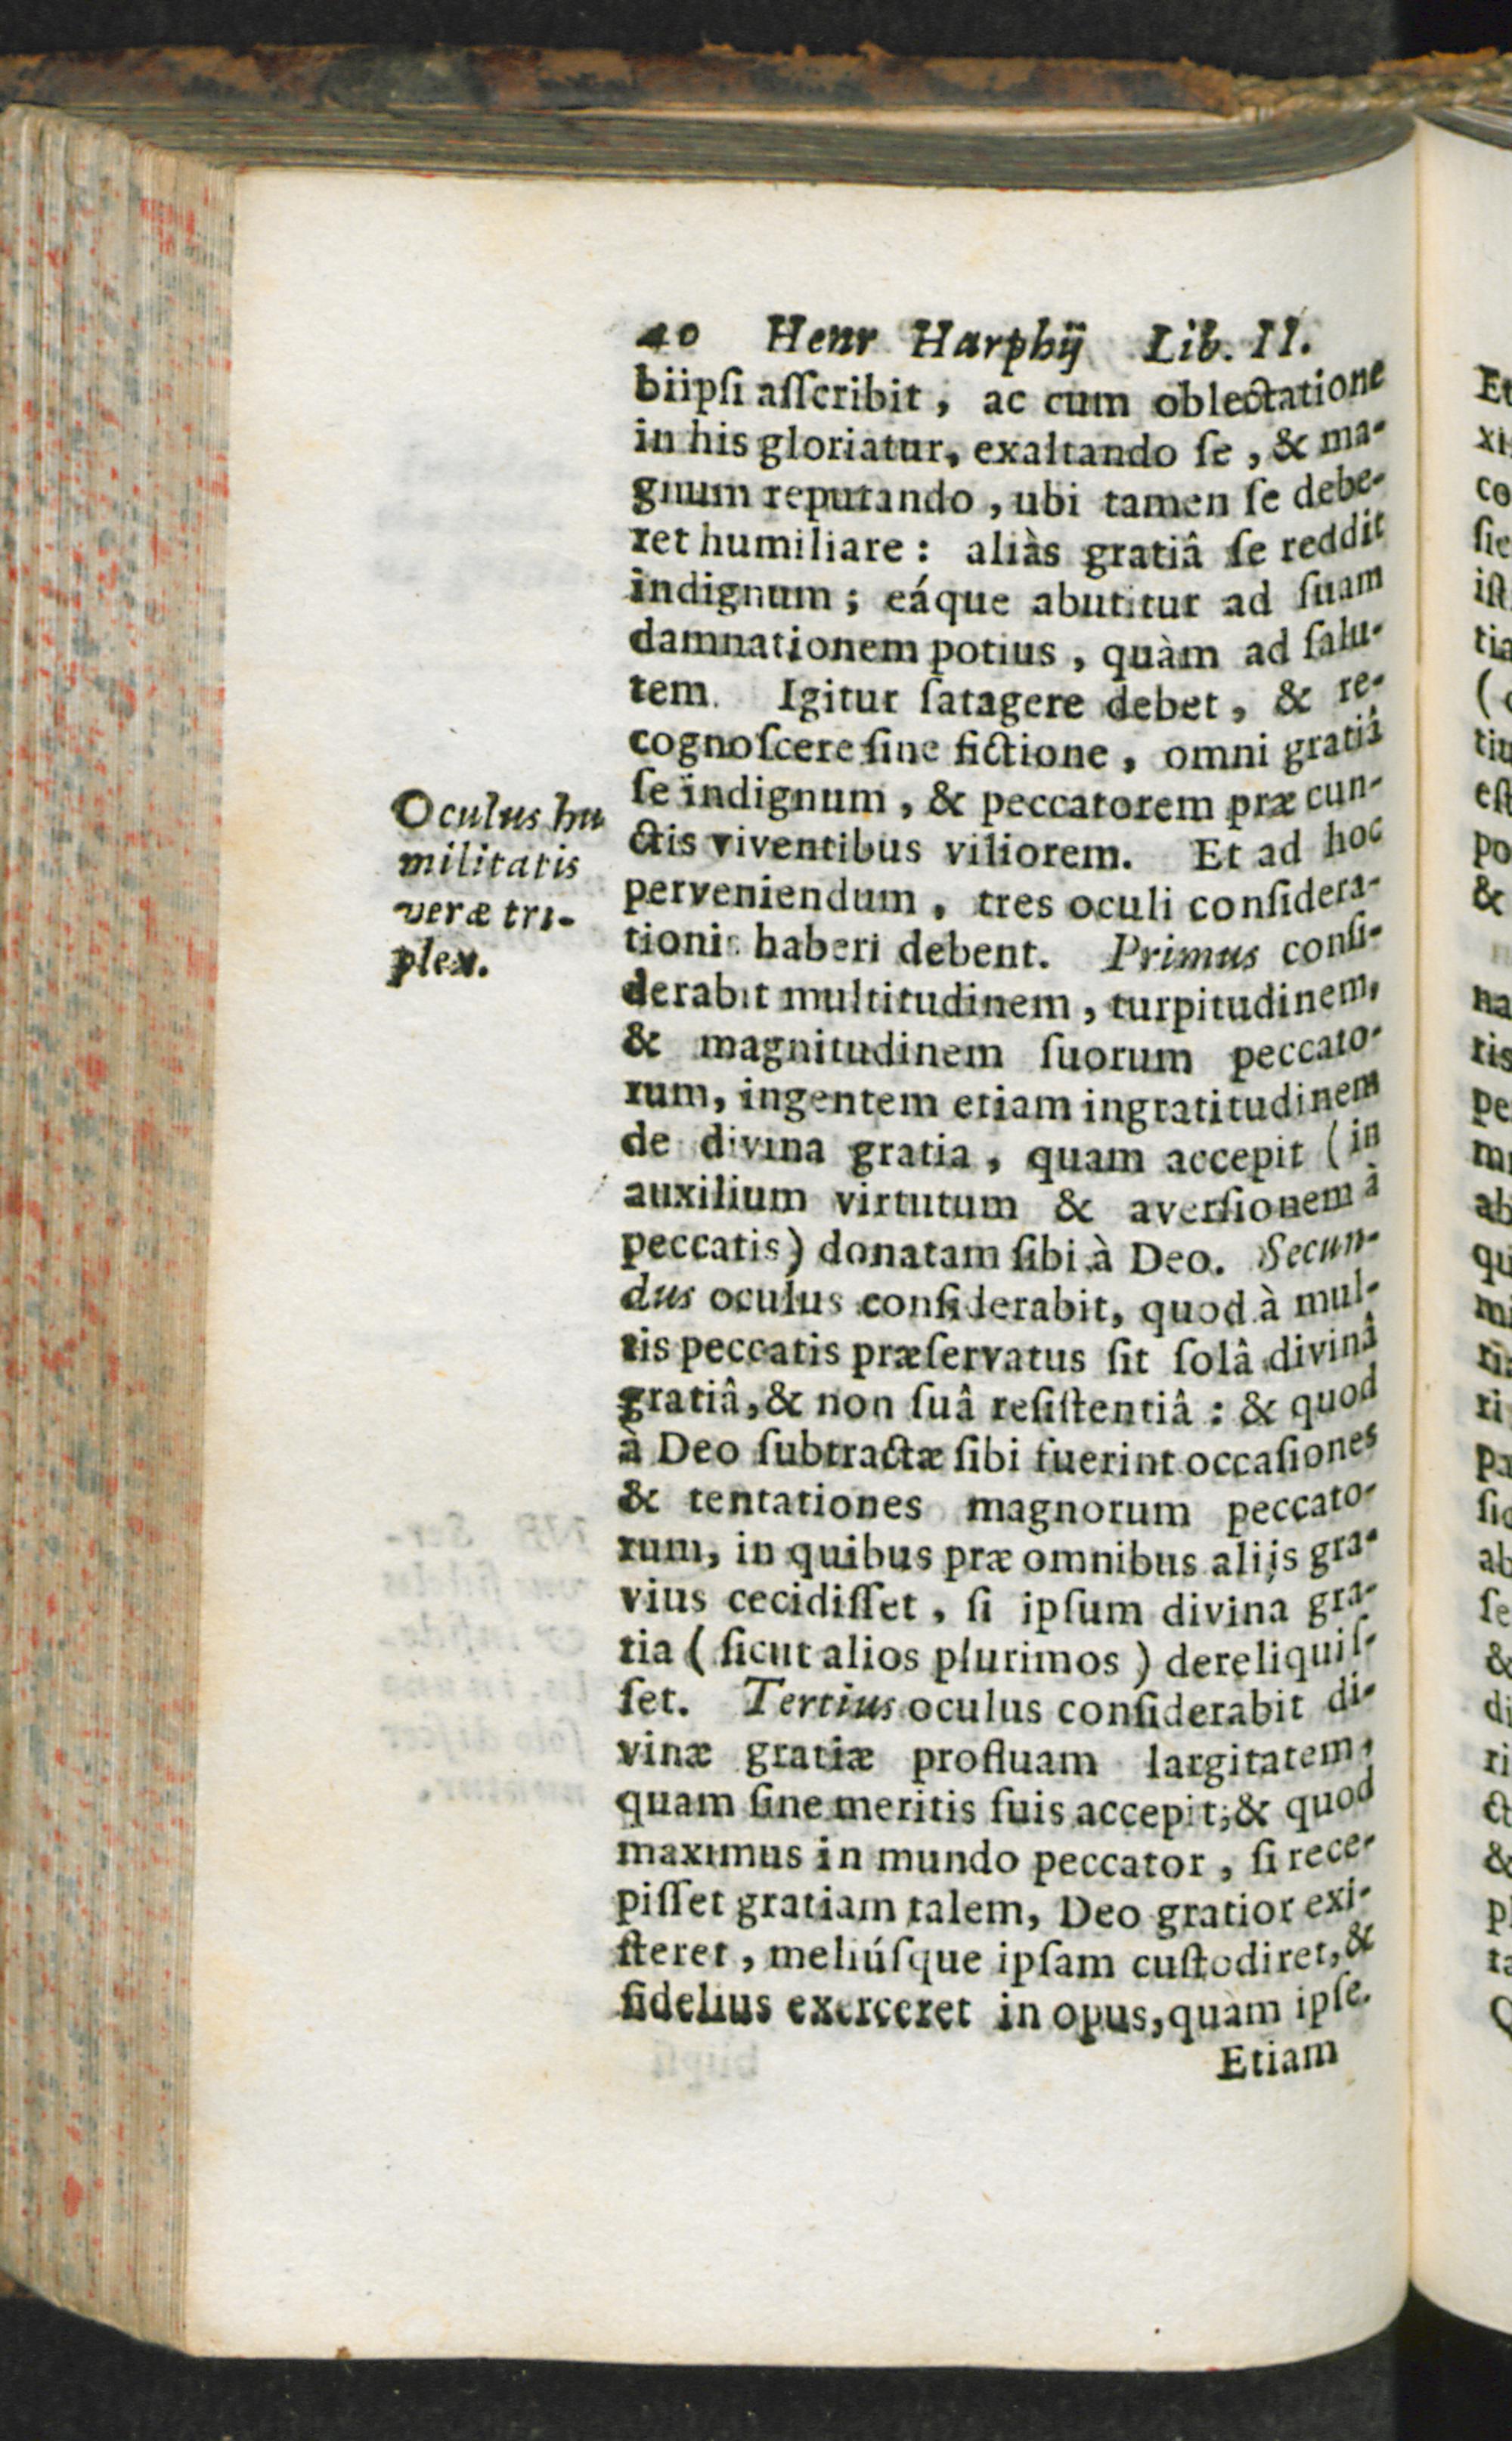 40 Henr Harphij Lib. II.
biipſi aſſcribit, ac cum oblectatione
in his gloriatur, exaltando ſe, & ma-
gnum reputando, ubi tamen ſe debe-
ret humiliare: aliàs gratiâ ſe reddit
indignum; eáque abutitur ad ſuam
damnationem potius, quàm ad ſalu-
tem. Igitur ſatagere debet, & re-
cognoſcere ſine fictione, omni gratiâ
ſe indignum, & peccatorem præ cun-
ctis viventibus viliorem. Et ad hoc
perveniendum, tres oculi conſidera-
tionis haberi debent. Primus conſi-
derabit multitudinem, turpitudinem,
& magnitudinem ſuorum peccato-
rum, ingentem etiam ingratitudinem
de divina gratia, quam accepit (in
auxilium virtutum & averſionem à
peccatis) donatam ſibi à Deo. Secun-
dus oculus conſiderabit, quod à mul-
tis peccatis præſervatus ſit ſolâ divinâ
gratiâ, & non ſuâ reſiſtentiâ: & quod
à Deo ſubtractæ ſibi fuerint occaſiones
& tentationes magnorum peccato-
rum, in quibus præ omnibus alijs gra-
vius cecidiſſet, ſi ipſum divina gra-
tia (ſicut alios plurimos) dereliquiſ-
ſet. Tertius oculus conſiderabit di-
vinæ gratiæ profluam largitatem,
quam ſine meritis ſuis accepit; & quod
maximus in mundo peccator, ſi rece-
piſſet gratiam talem, Deo gratior exi-
ſteret, meliúſque ipſam cuſtodiret, &
fidelius exerceret in opus, quàm ipſe.
Etiam
Oculus hu
militatis
veræ tri-
plex.